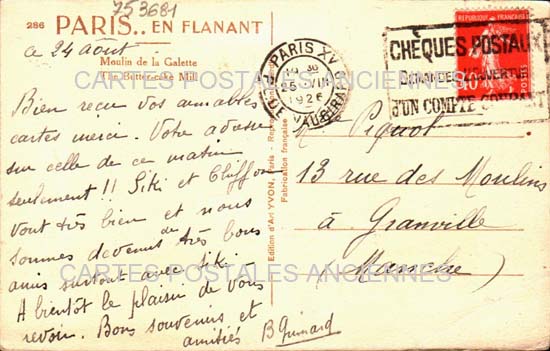 753681
286 PARIS.. EN FLANANT
ce 24 août
Moulin de la Galette
The Butter-cake Mill
Bien reçu vos aimables
cartes merci. Votre adresse
sur celle de ce matin
seulement !! Siki et Cliffon
vont très bien et nous
sommes devenus de très bons
amis surtout avec Siki.
A bientôt le plaisir de vous
revoir. Bons souvenirs et
amitiés B Guinard
Edition d'Art YVON, Paris
Fabrication française
PARIS XV
25 VIII
1926
R. DE VAUGIRARD
CHÈQUES POSTAUX
D'UN COMPTE COURANT
REPUBLIQUE FRANÇAISE
10
M. Piquot
13 rue des Moulins
à Granville
(Manche)
CARTES POSTALES ANCIENNES
CARTES POSTALES ANCIENNES